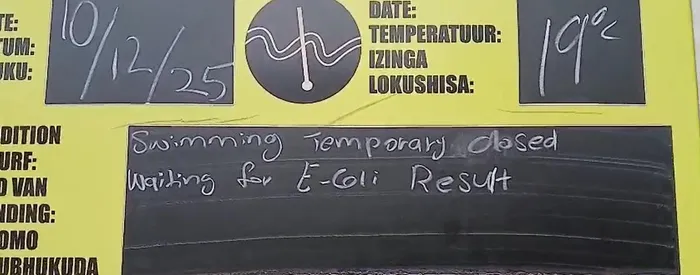 TE:
TUM:
UKU:
10/12/25
DATE:
TEMPERATUUR:
IZINGA
LOKUSHISA:
19°c
DITION
URF:
D VAN
NDING:
OMO
UBHUKUDA
Swimming Temporary closed
Waiting for E-Coli Result